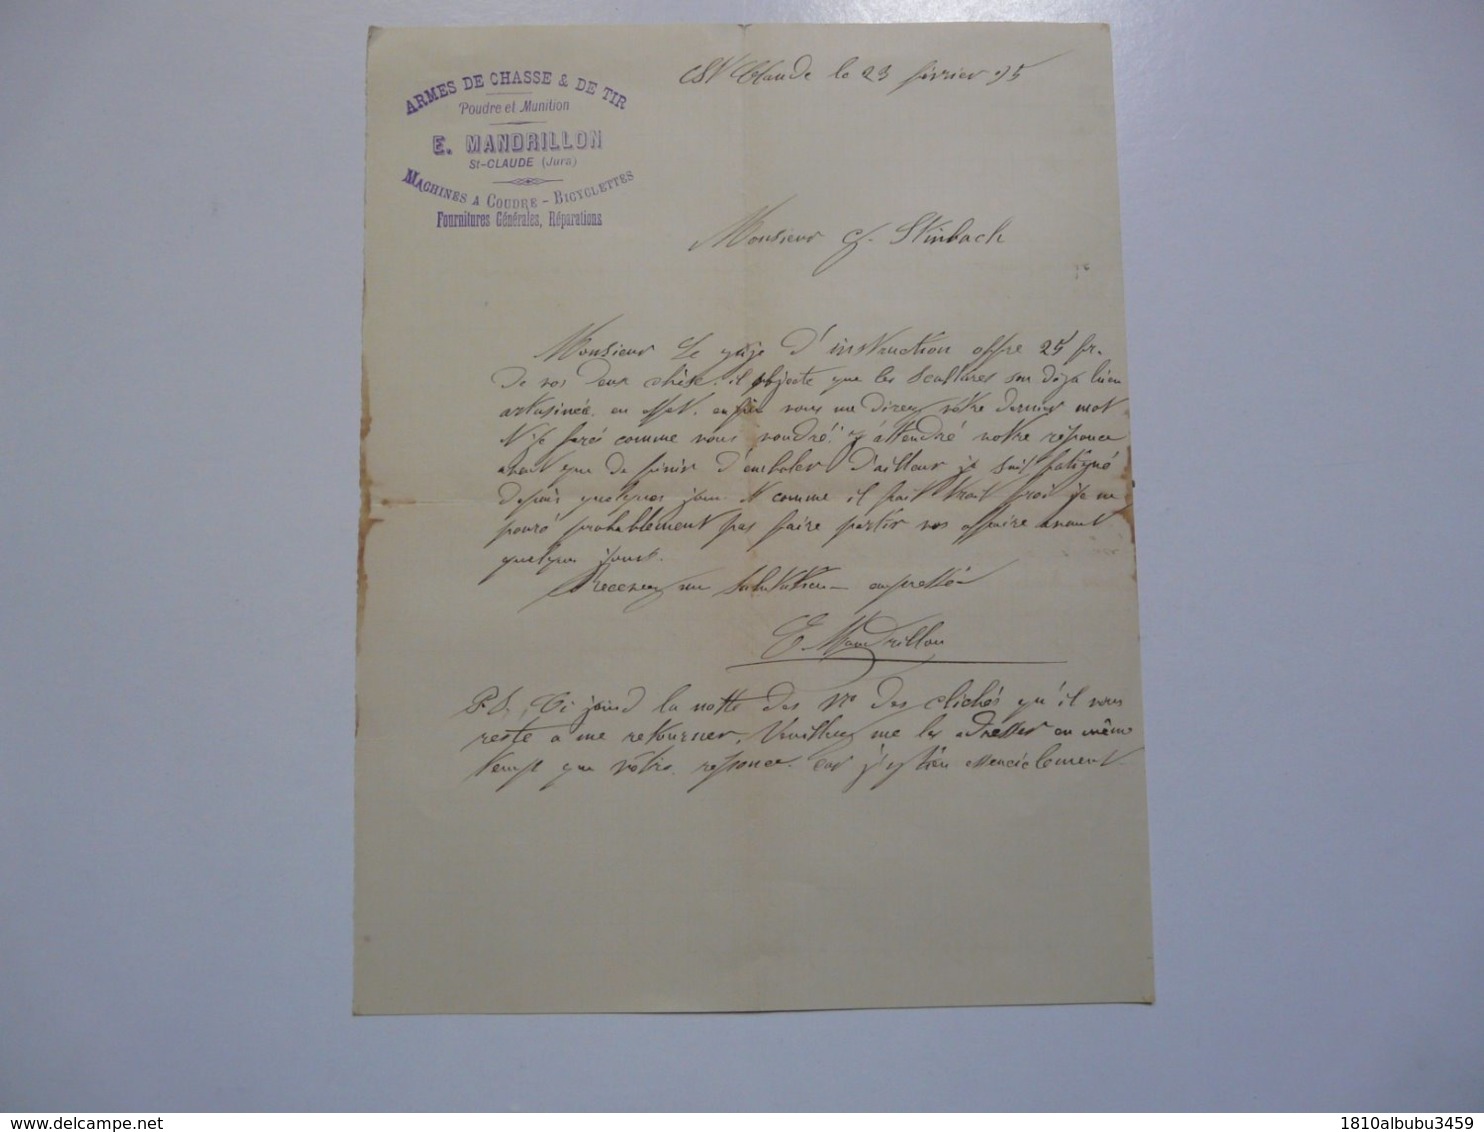 ARMES DE CHASSE & DE TIR
Poudre et Munition
E. MANDRILLON
St-CLAUDE (Jura)
MACHINES A COUDRE - BICYCLETTES
Fournitures Générales, Réparations
St Claude le 23 février 95
Monsieur Stinbach
Monsieur Le juge d'instruction offre 25 fr.
de vos deux il objecte que les Scultures son déja bien
en effet, enfin vous me direz vôtre dernier mot
je ferés comme vous voudré. j'attendré votre réponce
avant que de finir d'embaler D'ailleur je suis fatigué
depuis quelques jour. et comme il fait trait froid je ne
pouré probablement pas faire partir vos affaire avant
quelques jours.
Recevez me Salutation empressée
E Mandrillon
P.S. Ci joind la notte des No des clichés qu'il vous
reste a me retourner, Veuillez me les adresser en même
temp que vôtre reponce. car j'y tien essenciclement.
delcampe.net
1810albubu3459